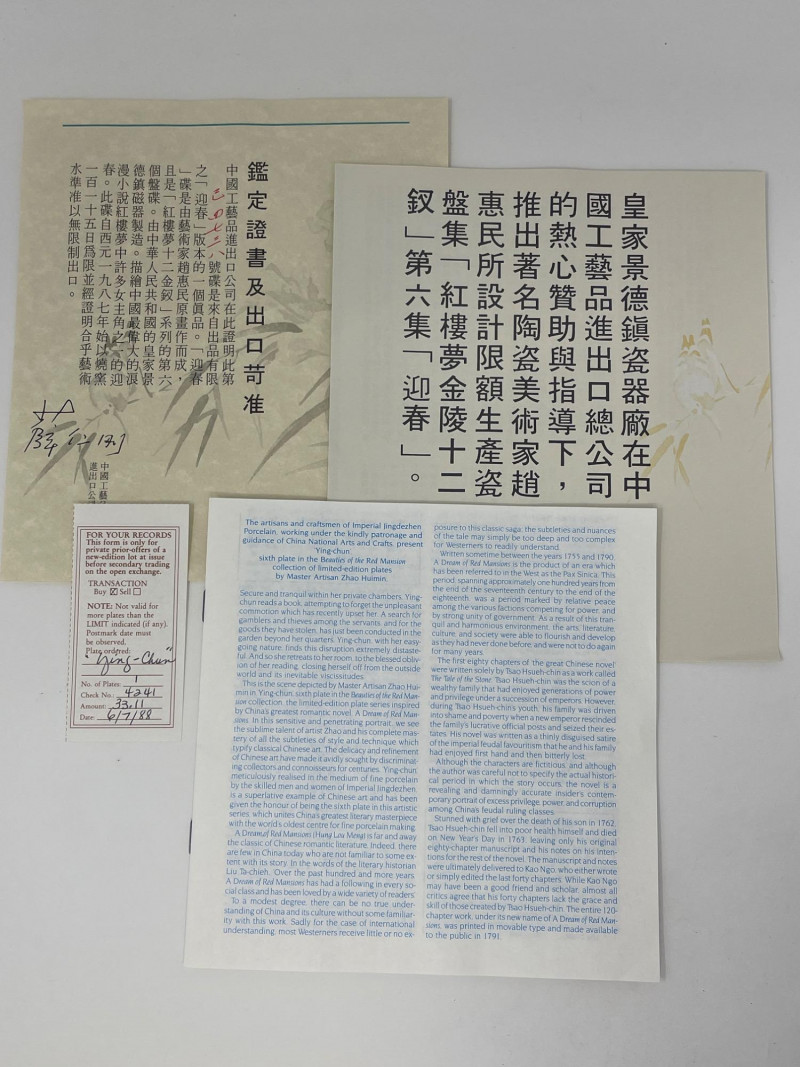 鑑定證書及出口苛准
中國工藝品進出口公司在此證明此第
號碟是來自出品有限
之「迎春」版本的一個真品。「迎春
」碟是由藝術家趙惠民原畫作而成，
且是「紅樓夢十二金釵」系列的第六
個盤碟。由中華人民共和國的皇家景
德鎮磁器製造。描繪中國最偉大的浪
漫小說紅樓夢中許多女主角之一的迎
春。此碟自西元一九八七年始以燒窯
一百一十五日爲限並經證明合乎藝術
水準准以無限制出口。
中國工藝
進出口公
皇家景德鎮瓷器廠在中
國工藝品進出口總公司
的熱心贊助與指導下，
推出著名陶瓷美術家趙
惠民所設計限額生產瓷
盤集「紅樓夢金陵十二
釵」第六集「迎春」。
FOR YOUR RECORDS
This form is only for
private prior-offers of a
new-edition lot at issue
before secondary trading
on the open exchange.
TRANSACTION
Buy Sell
NOTE: Not valid for
more plates than the
LIMIT indicated (if any).
Postmark date must
be observed.
Plate ordered:
"Ying-Chun"
No. of Plates: 1
Check No.: 4241
Amount: 33.11
Date: 6/7/88
The artisans and craftsmen of Imperial Jingdezhen
Porcelain, working under the kindly patronage and
guidance of China National Arts and Crafts, present
Ying-chun,
sixth plate in the Beauties of the Red Mansion
collection of limited-edition plates
by Master Artisan Zhao Huimin.
Secure and tranquil within her private chambers, Ying-
chun reads a book, attempting to forget the unpleasant
commotion which has recently upset her. A search for
gamblers and thieves among the servants, and for the
goods they have stolen, has just been conducted in the
garden beyond her quarters. Ying-chun, with her easy-
going nature, finds this disruption extremely distaste-
ful. And so she retreats to her room, to the blessed obliv-
ion of her reading, closing herself off from the outside
world and its inevitable viscissitudes.
This is the scene depicted by Master Artisan Zhao Hui-
min in Ying-chun, sixth plate in the Beauties of the Red Man-
sion collection, the limited-edition plate series inspired
by China's greatest romantic novel, A Dream of Red Man-
sions. In this sensitive and penetrating portrait, we see
the sublime talent of artist Zhao and his complete mas-
tery of all the subtleties of style and technique which
typify classical Chinese art. The delicacy and refinement
of Chinese art have made it avidly sought by discriminat-
ing collectors and connoisseurs for centuries. Ying-chun,
meticulously realised in the medium of fine porcelain
by the skilled men and women of Imperial Jingdezhen,
is a superlative example of Chinese art and has been
given the honour of being the sixth plate in this artistic
series, which unites China's greatest literary masterpiece
with the world's oldest centre for fine porcelain making.
A Dream of Red Mansions (Hung Lou Meng) is far and away
the classic of Chinese romantic literature. Indeed, there
are few in China today who are not familiar to some ex-
tent with its story. In the words of the literary historian
Liu Ta-chieh, 'Over the past hundred and more years
A Dream of Red Mansions has had a following in every so-
cial class and has been loved by a wide variety of readers.'
To a modest degree, there can be no true under-
standing of China and its culture without some familiar-
ity with this work. Sadly for the case of international
understanding, most Westerners receive little or no ex-
posure to this classic saga; the subtleties and nuances
of the tale may simply be too deep and too complex
for Westerners to readily understand.
Written sometime between the years 1755 and 1790,
A Dream of Red Mansions is the product of an era which
has been referred to in the West as the Pax Sinica. This
period, spanning approximately one hundred years from
the end of the seventeenth century to the end of the
eighteenth, was a period marked by relative peace
among the various factions competing for power, and
by strong unity of government. As a result of this tran-
quil and harmonious environment, the arts, literature,
culture, and society were able to flourish and develop
as they had never done before, and were not to do again
for many years.
The first eighty chapters of 'the great Chinese novel'
were written solely by Tsao Hsueh-chin as a work called
The Tale of the Stone. Tsao Hsueh-chin was the scion of a
wealthy family that had enjoyed generations of power
and privilege under a succession of emperors. However,
during Tsao Hsueh-chin's youth, his family was driven
into shame and poverty when a new emperor rescinded
the family's lucrative official posts and seized their es-
tates. His novel was written as a thinly disguised satire
of the imperial feudal favouritism that he and his family
had enjoyed first hand and then bitterly lost.
Although the characters are fictitious, and although
the author was careful not to specify the actual histori-
cal period in which the story occurs, the novel is a
revealing and damningly accurate insider's contem-
porary portrait of excess privilege, power and corruption
among China's feudal ruling classes.
Stunned with grief over the death of his son in 1762,
Tsao Hsueh-chin fell into poor health himself and died
on New Year's Day in 1763, leaving only his original
eighty-chapter manuscript and his notes on his inten-
tions for the rest of the novel. The manuscript and notes
were ultimately delivered to Kao Ngo, who either wrote
or simply edited the last forty chapters. While Kao Ngo
may have been a good friend and scholar, almost all
critics agree that his forty chapters lack the grace and
skill of those created by Tsao Hsueh-chin. The entire 120-
chapter work, under its new name of A Dream of Red Man-
sions, was printed in movable type and made available
to the public in 1791.